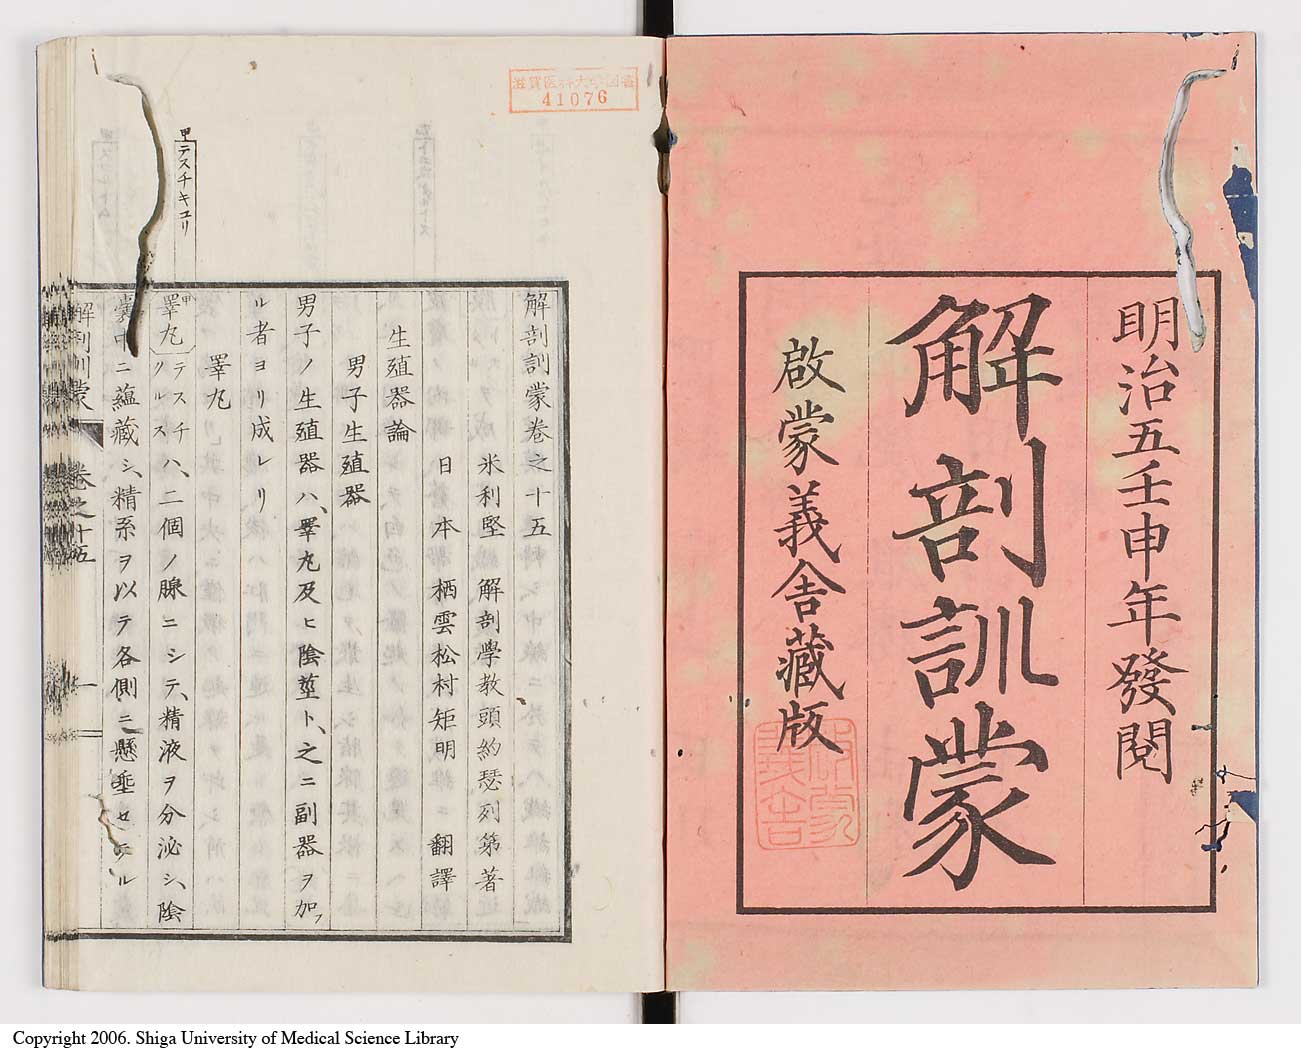 明治五壬申年發閱
解剖訓蒙
啟蒙義舍藏版
滋賀医科大学図書
41076
解剖訓蒙卷之十五
米利堅 解剖學教頭約瑟列第著
日本 栖雲松村矩明 翻譯
生殖器論
男子生殖器
男子ノ生殖器ハ、睪丸及ヒ陰莖ト、之ニ副器ヲ加フ
ル者ヨリ成レリ
睪丸
甲テスチキユリ
甲睪丸テスチ
ルスハ、二個ノ腺ニシテ、精液ヲ分泌シ、陰
囊中ニ蘊藏シ、精系ヲ以テ各側ニ懸垂セラル
解剖訓蒙 卷之十五 一
Copyright 2006. Shiga University of Medical Science Library